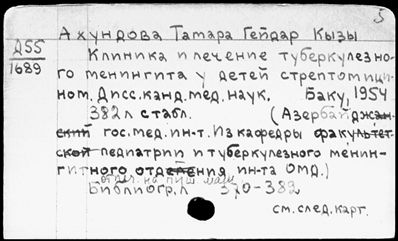 5
Ахундова Тамара Гейдар Кызы
Д55
1689
Клиника и лечение туберкулезно-
го менингита у детей стрептомици-
ном. Дисс. канд. мед. наук. Баку, 1954
382л стабл. (Азербайджан-
ский гос. мед. ин-т. Из кафедры факультет-
ской педиатрии и туберкулезного менин-
гитного отделения ин-та ОМД.)
отпеч. на пиш. маш.
Библиогр. л 370-382
см. след. карт.